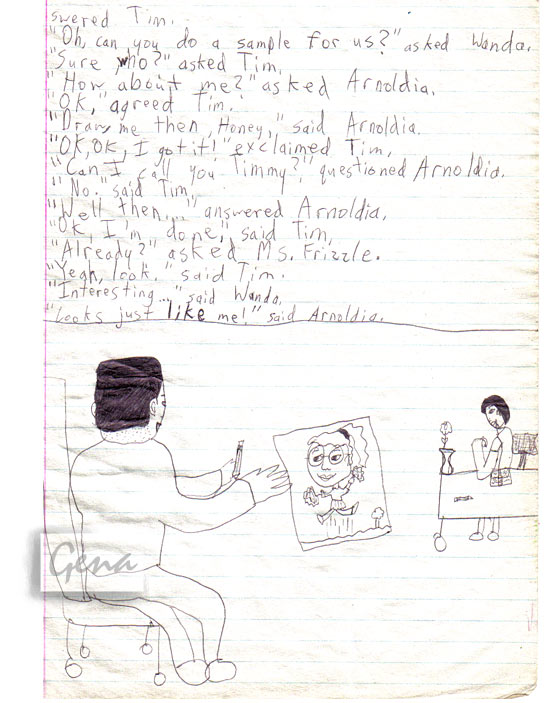 swered Tim.
"Oh, can you do a sample for us?" asked Wanda.
"Sure, who?" asked Tim.
"How about me?" asked Arnoldia.
"OK," agreed Tim.
"Draw me then, Honey," said Arnoldia.
"OK, OK, I got it!" exclaimed Tim.
"Can I call you Timmy?," questioned Arnoldia.
"No." said Tim.
"Well then..." answered Arnoldia.
"Ok, I'm done," said Tim.
"Already?" asked Ms. Frizzle.
"Yeah, look." said Tim.
"Interesting..." said Wanda.
"Looks just like me!" said Arnoldia.
Gena